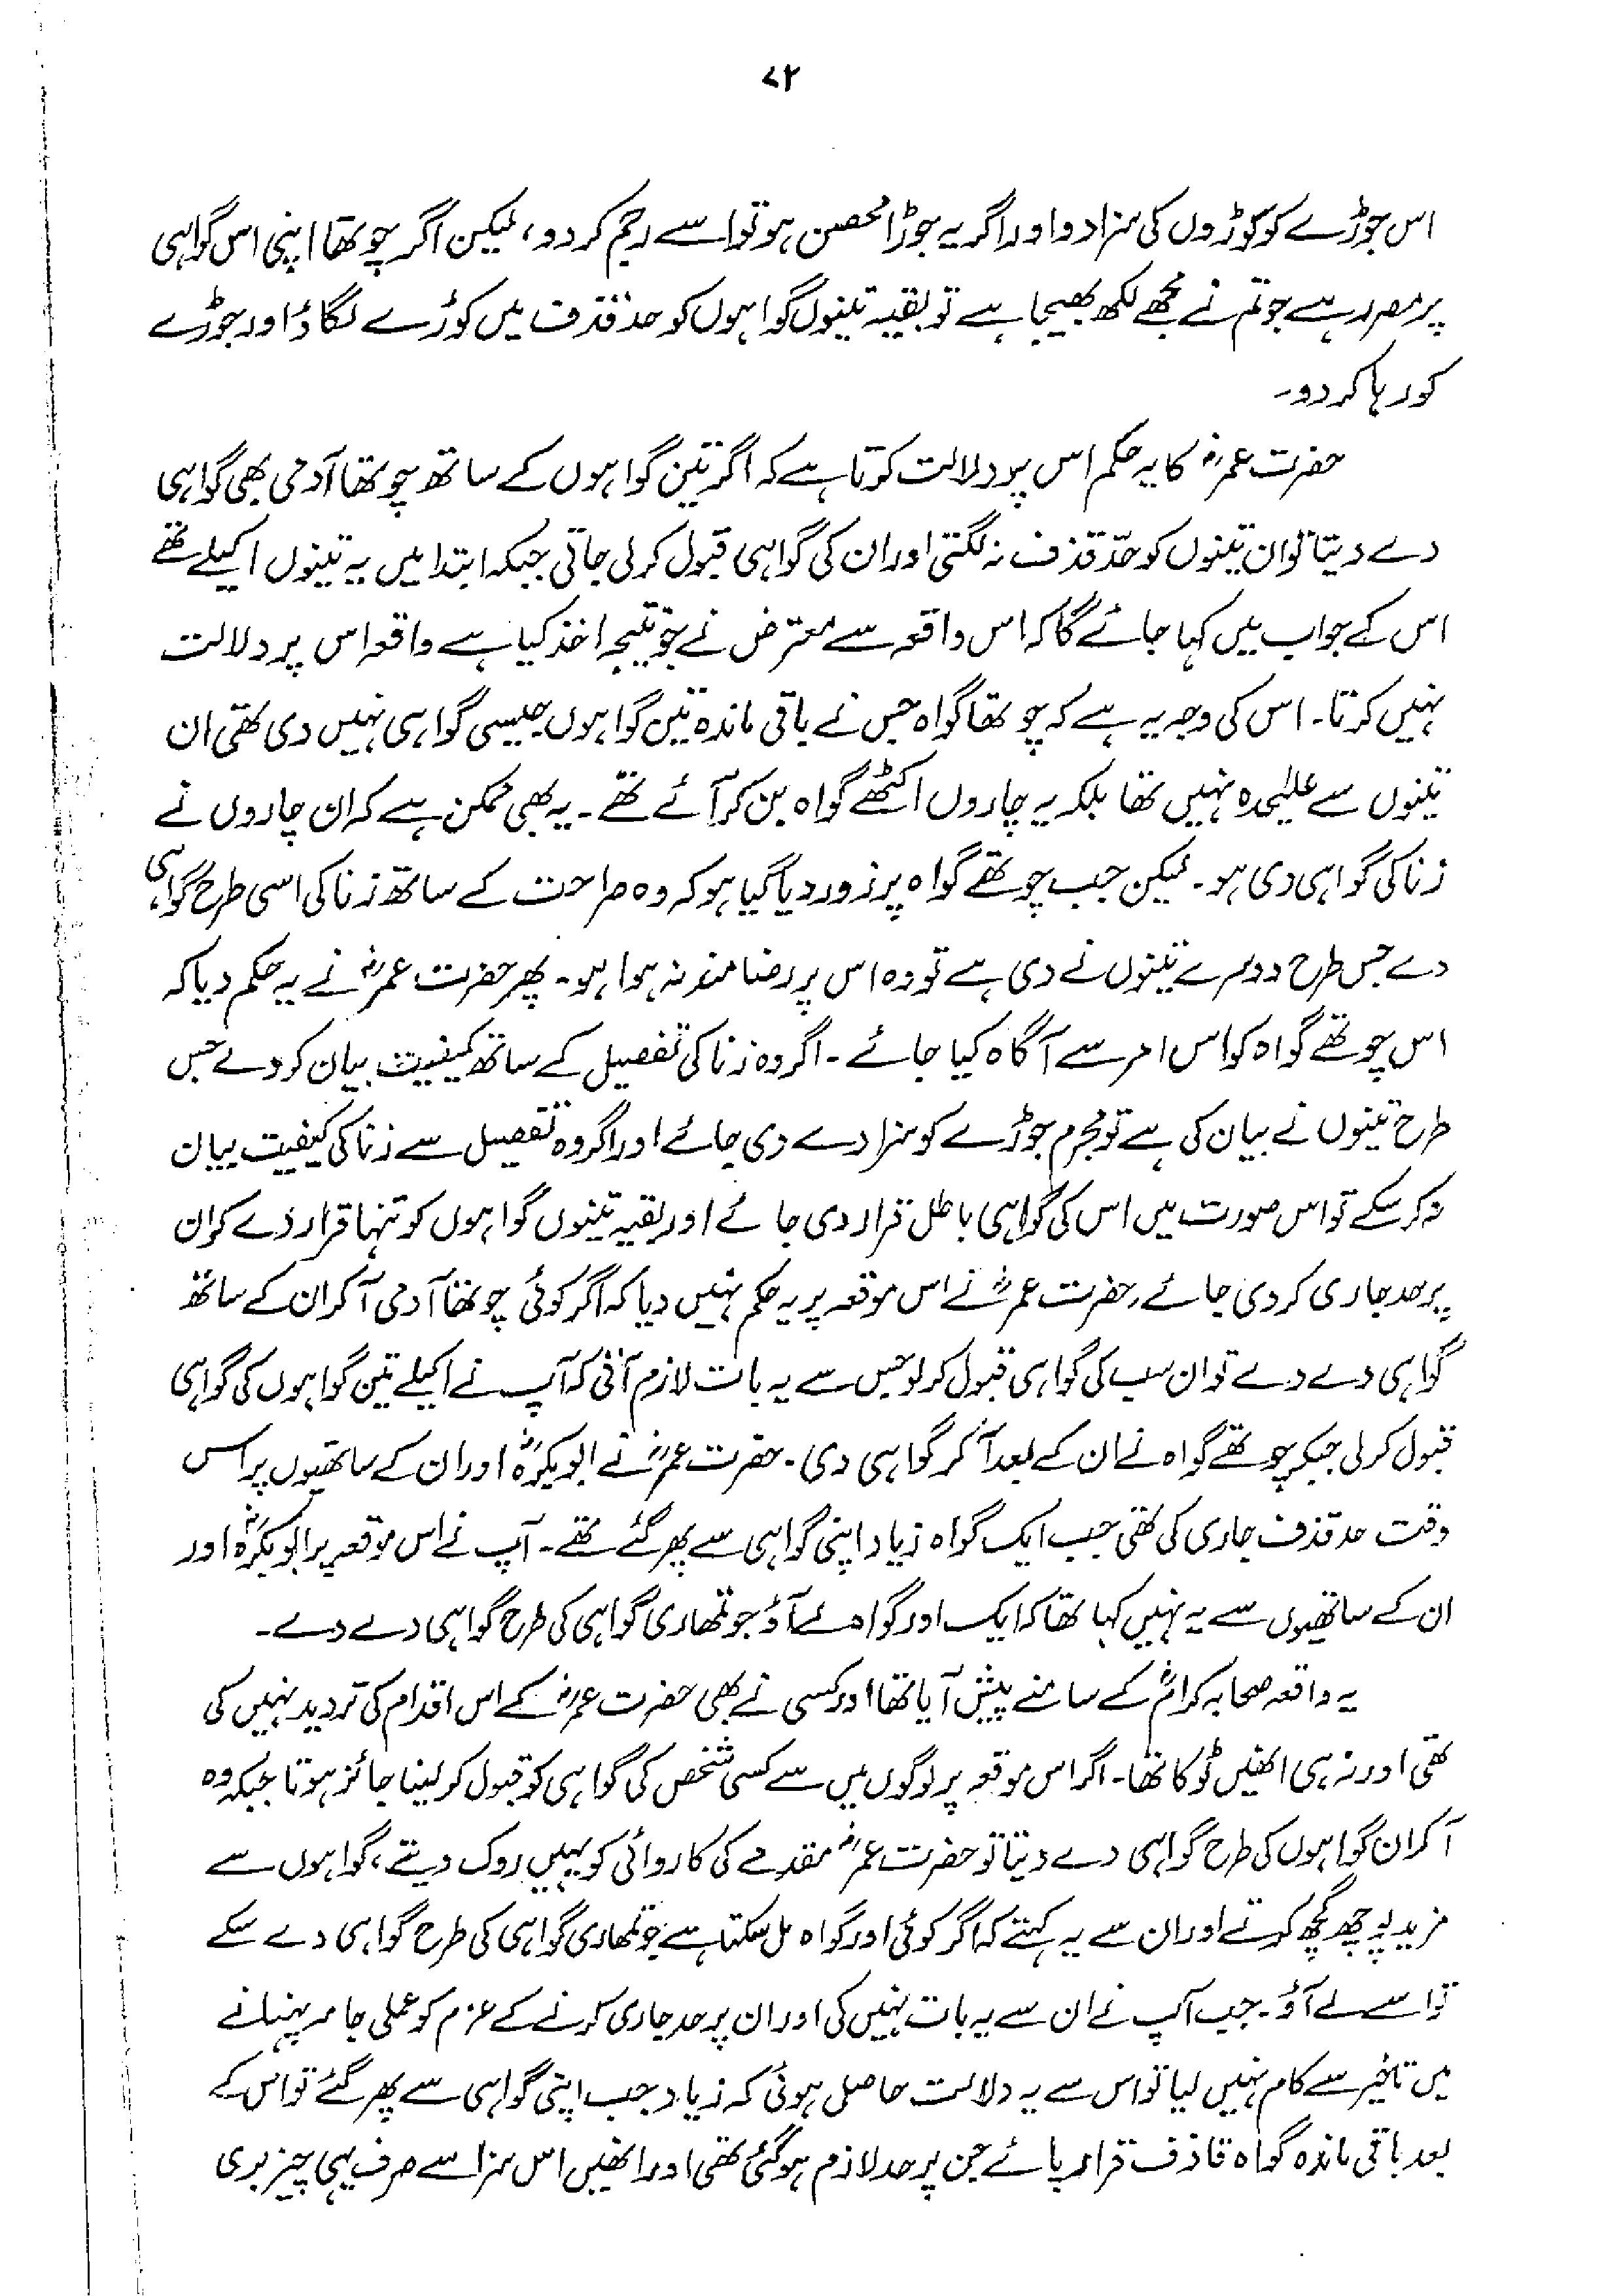 ۷۲
اس جوڑے کو کوڑوں کی سزا دو اور اگر یہ جوڑا محصن ہو تو اسے رجم کر دو، لیکن اگر چوتھا اپنی اس گواہی
پر مصر رہے جو تم نے مجھے لکھ بھیجا ہے تو بقیہ تینوں گواہوں کو حد قذف میں کوڑے لگا دُ اور جوڑے
کو رہا کر دو۔
حضرت عمرؓ کا یہ حکم اس پر دلالت کرتا ہے کہ اگر تین گواہوں کے ساتھ چوتھا آدمی بھی گواہی
دے دیتا تو ان تینوں کو حدّ قذف نہ لگتی اور ان کی گواہی قبول کر لی جاتی جبکہ ابتدا میں یہ تینوں اکیلے تھے
اس کے جواب میں کہا جائے گا کہ اس واقعہ سے معترض نے جو نتیجہ اخذ کیا ہے واقعہ اس پر دلالت
نہیں کرتا۔ اس کی وجہ یہ ہے کہ چوتھا گواہ جس نے باقی ماندہ تین گواہوں جیسی گواہی نہیں دی تھی ان
تینوں سے علیحدہ نہیں تھا بلکہ یہ چاروں اکٹھے گواہ بن کر آئے تھے۔ یہ بھی ممکن ہے کہ ان چاروں نے
زنا کی گواہی دی ہو۔ لیکن جب چوتھے گواہ پر زور دیا گیا ہو کہ وہ صراحت کے ساتھ زنا کی اسی طرح گواہی
دے جس طرح دوسرے تینوں نے دی ہے تو وہ اس پر رضامند نہ ہوا ہو۔ پھر حضرت عمرؓ نے یہ حکم دیا کہ
اس چوتھے گواہ کو اس امر سے آگاہ کیا جائے۔ اگر وہ زنا کی تفصیل کے ساتھ کیفیت بیان کر دے جس
طرح تینوں نے بیان کی ہے تو مجرم جوڑے کو سزا دے دی جائے اور اگر وہ تفصیل سے زنا کی کیفیت بیان
نہ کر سکے تو اس صورت میں اس کی گواہی باطل قرار دی جائے اور بقیہ تینوں گواہوں کو تنہا قرار دے کر ان
پر حد جاری کر دی جائے، حضرت عمرؓ نے اس موقعہ پر یہ حکم نہیں دیا کہ اگر کوئی چوتھا آدمی آ کر ان کے ساتھ
گواہی دے دے تو ان سب کی گواہی قبول کر لو جس سے یہ بات لازم آتی کہ آپ نے اکیلے تین گواہوں کی گواہی
قبول کر لی جبکہ چوتھے گواہ نے ان کے بعد آ کر گواہی دی۔ حضرت عمرؓ نے ابوبکرہؓ اور ان کے ساتھیوں پر اس
وقت حد قذف جاری کی تھی جب ایک گواہ زیاد اپنی گواہی سے پھر گئے تھے۔ آپ نے اس موقعہ پر ابوبکرہؓ اور
ان کے ساتھیوں سے یہ نہیں کہا تھا کہ ایک اور گواہ لے آؤ جو تمھاری گواہی کی طرح گواہی دے دے۔
یہ واقعہ صحابہ کرامؓ کے سامنے پیش آیا تھا اور کسی نے بھی حضرت عمرؓ کے اس اقدام کی تردید نہیں کی
تھی اور نہ ہی انھیں ٹوکا تھا۔ اگر اس موقعہ پر لوگوں میں سے کسی شخص کی گواہی کو قبول کر لینا جائز ہوتا جبکہ وہ
آ کر ان گواہوں کی طرح گواہی دے دیتا تو حضرت عمرؓ مقدمے کی کاروائی کو یہیں روک دیتے، گواہوں سے
مزید پوچھ گچھ کرتے اور ان سے یہ کہتے کہ اگر کوئی اور گواہ مل سکتا ہے جو تمھاری گواہی کی طرح گواہی دے سکے
تو اسے لے آؤ۔ جب آپ نے ان سے یہ بات نہیں کی اور ان پر حد جاری کرنے کے عزم کو عملی جامہ پہنانے
میں تاخیر سے کام نہیں لیا تو اس سے یہ دلالت حاصل ہوئی کہ زیاد جب اپنی گواہی سے پھر گئے تو اس کے
بعد باقی ماندہ گواہ قاذف قرار پائے جن پر حد لازم ہو گئی تھی اور انھیں اس سزا سے صرف یہی چیز بری